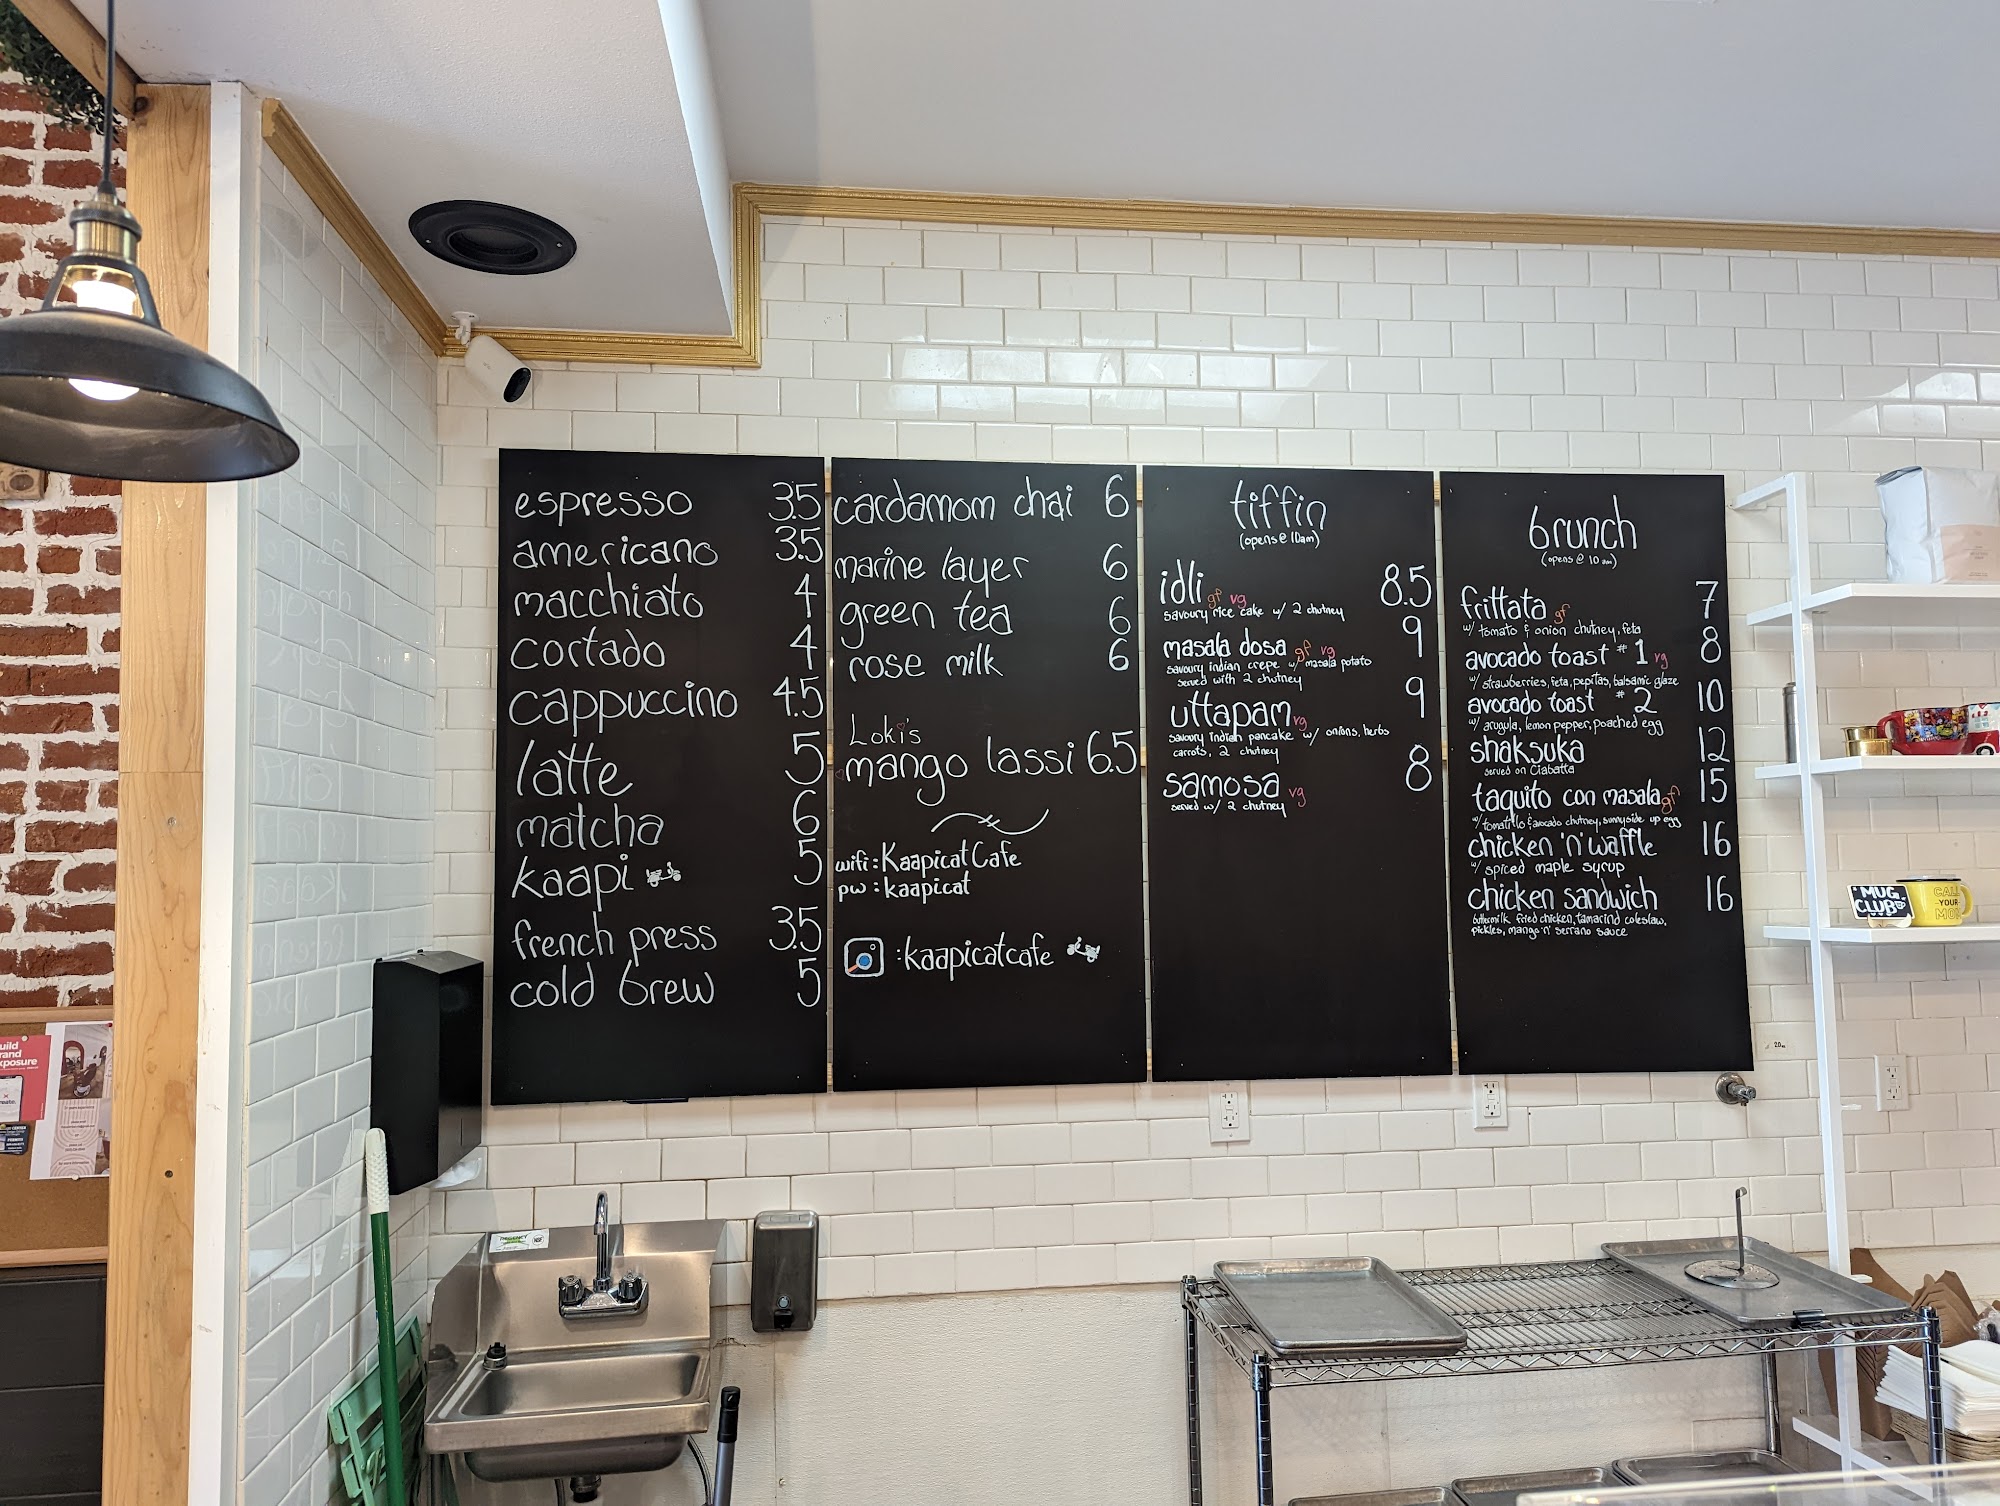 espresso 3.5
americano 3.5
macchiato 4
cortado 4
cappuccino 4.5
latte 5
matcha 6
kaapi 5
french press 3.5
cold brew 5
cardamom chai 6
marine layer 6
green tea 6
rose milk 6
Loki's
mango lassi 6.5
wifi: Kaapicat Cafe
pw: kaapicat
:kaapicatcafe
tiffin
(opens @ 10am)
idli gf vg 8.5
savoury rice cake w/ 2 chutney
masala dosa gf vg 9
savoury indian crepe w/ masala potato
served with 2 chutney
uttapam vg 9
savoury indian pancake w/ onions, herbs
carrots, 2 chutney
samosa vg 8
served w/ 2 chutney
brunch
(opens @ 10 am)
frittata gf 7
w/ tomato & onion chutney, feta
avocado toast #1 vg 8
w/ strawberries, feta, pepitas, balsamic glaze
avocado toast #2 10
w/ arugula, lemon pepper, poached egg
shaksuka 12
served on Ciabatta
taquito con masala gf 15
w/ tomatillo & avocado chutney, sunnyside up egg
chicken 'n' waffle 16
w/ spiced maple syrup
chicken sandwich 16
buttermilk fried chicken, tamarind coleslaw,
pickles, mango 'n' serrano sauce
MUG
CLUB
CALL
-YOUR-
MOM
uild
rand
xposure
REGENCY
NSF